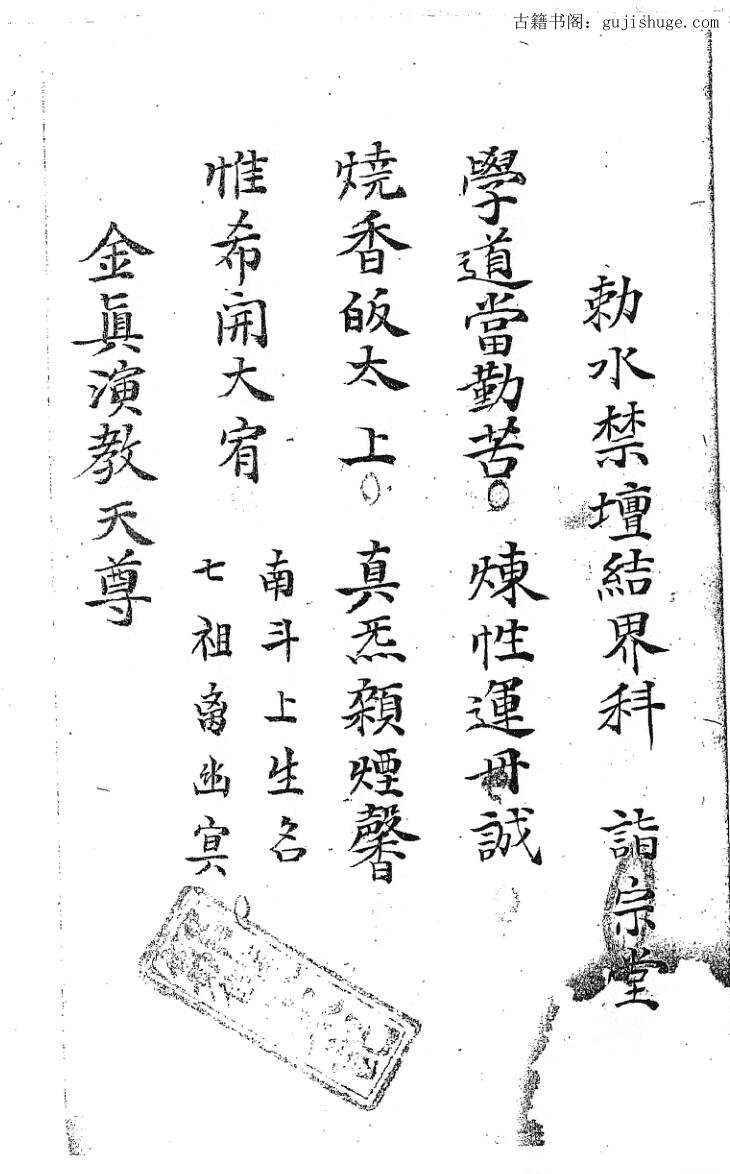 古籍书阁：gujishuge.com
勅水禁壇結界科　詣宗堂
學道當勤苦　煉性運丹誠
燒香皈太上　真炁雜煙馨
惟希開大宥　南斗上生名
七祖离幽冥
金眞演教天尊